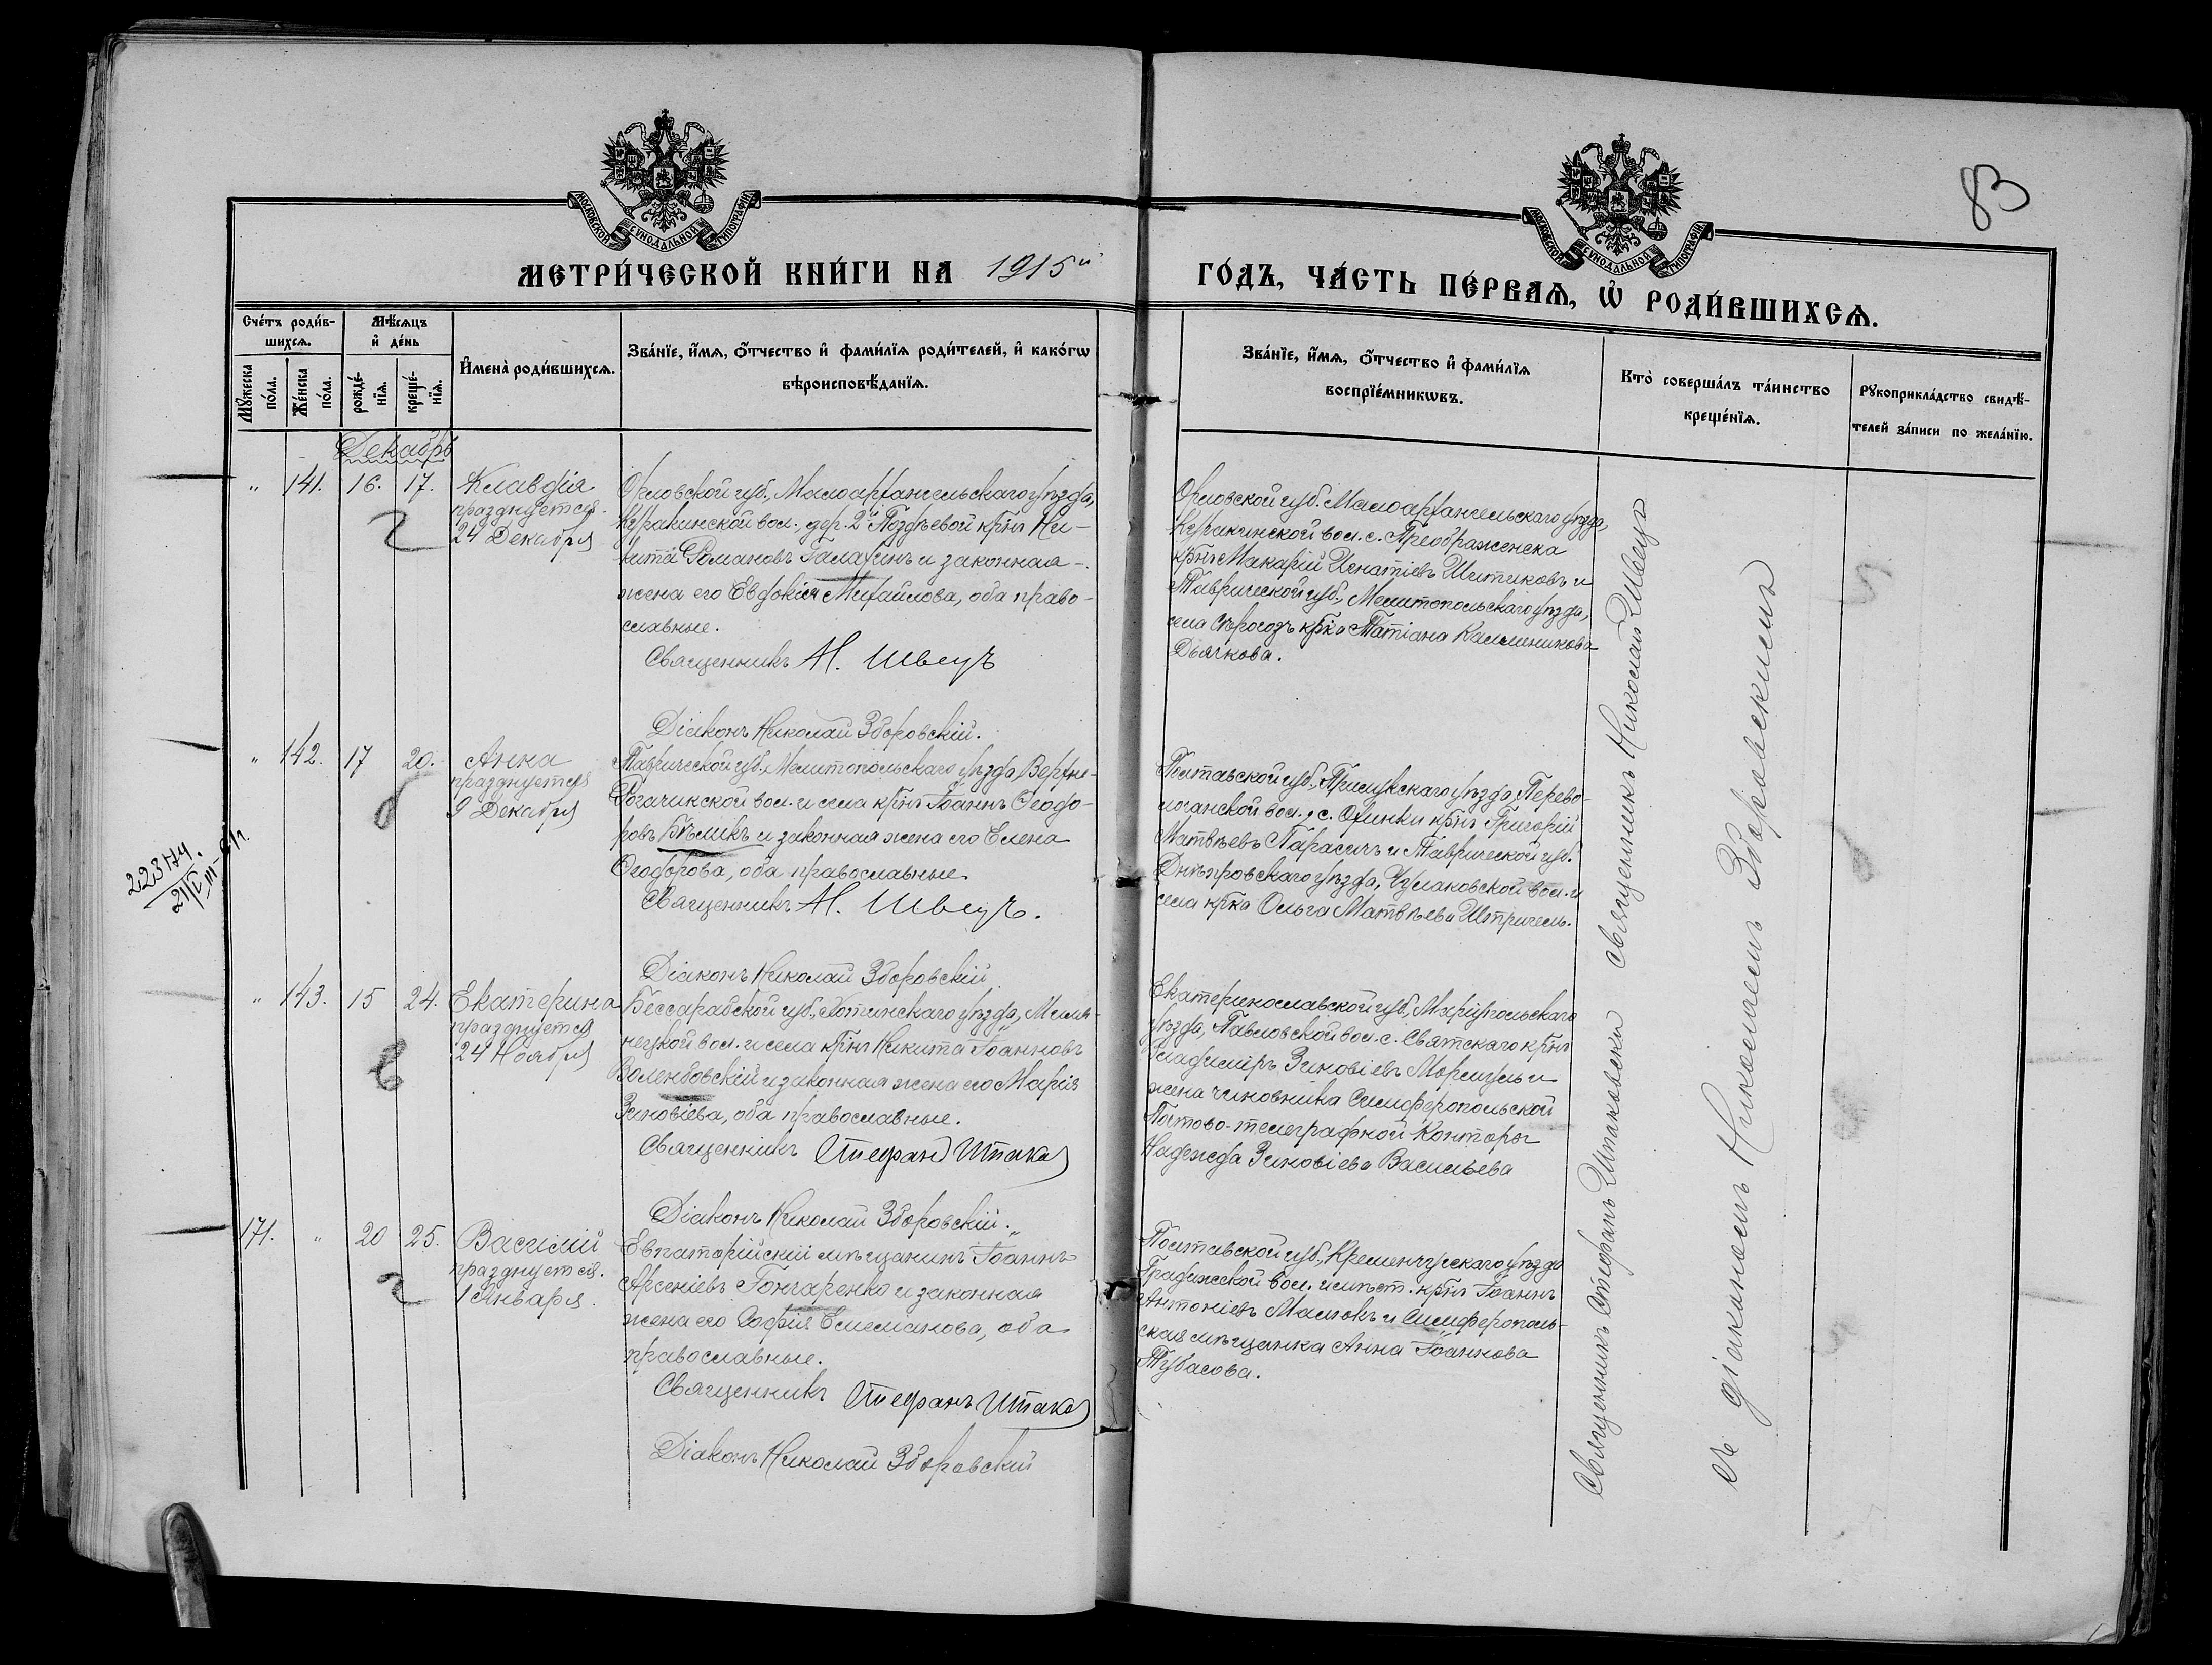 83
МОСКОВСКОЙ СУНОДАЛЬНОЙ ТИПОГРАФІИ
МОСКОВСКОЙ СУНОДАЛЬНОЙ ТИПОГРАФІИ
МЕТРИ́ЧЕСКОЙ КНИ́ГИ НА 1915й
ГО́ДЪ, ЧА́СТЬ ПЕ́РВАѦ, Ѡ҆ РОДИ́ВШИХСѦ.
Сче́тъ роди́в-
шихсѧ.
Мѣ́сѧцъ
и҆ де́нь
Мꙋ́жеска по́ла.
Же́нска по́ла.
рожде́-нїѧ.
креще́-нїѧ.
И҆мена̀ роди́вшихсѧ.
Зва́нїе, и҆́мѧ, ѻ҆́тчество и҆ фами́лїѧ роди́телей, и҆ како́гѡ
вѣроисповѣ́данїѧ.
Зва́нїе, и҆́мѧ, ѻ҆́тчество и҆ фами́лїѧ
воспрїе́мникѡвъ.
Кто̀ соверша́лъ та́инство
креще́нїѧ.
Рꙋкоприкла́дство свидѣ́-
телей за́писи по жела́нїю.
Декабрь
" 141. 16. 17.
Клавдія
празднуется
24 Декабря
Орловской губ., Малоархангельскаго уѣзда,
Куракинской вол., дер. 2й Поздѣевой крнъ Ни-
кита Романовъ Галахинъ и законная
жена его Евдокія Михайлова, оба право-
славные.
Священникъ Н. Швецъ
Діаконъ Николай Зборовскій.
Орловской губ. Малоархангельскаго уѣзда,
Куракинской вол. с. Преображенска
крнъ Макарій Игнатіевъ Шитиковъ и
Таврической губ., Мелитопольскаго уѣзда,
села Сѣрогозъ крка Татіана Калинникова
Дьячкова.
" 142. 17 20.
Анна
празднуется
9 Декабря
Таврической губ. Мелитопольскаго уѣзда, Верхне-
Рогачикской вол. и села крнъ Іоаннъ Ѳеодо-
ровъ Бѣликъ и законная жена его Елена
Ѳеодорова, оба православные.
Священникъ Н. Швецъ.
Діаконъ Николай Зборовскій.
Полтавской губ., Прилукскаго уѣзда, Перево-
лочанской вол., с. Охинки крнъ Григорій
Матвѣевъ Парасичъ и Таврической губ.
Днѣпровскаго уѣзда, Чулаковской вол. и
села крка Ольга Матвѣева Штричель.
223174.
" 143. 15 24.
Екатерина
празднуется
24 Ноября
Бессарабской губ., Хотинскаго уѣзда,
вол. и села крнъ Никита Іоанновъ
и законная жена его Марія
Зиновіева, оба православные.
Священникъ Стефанъ Шпака
Діаконъ Николай Зборовскій.
Екатеринославской губ., Маріупольскаго
уѣзда, Павловской вол. с. Святскаго крнъ
Владиміръ Зиновіевъ и
жена чиновника Симферопольской
Почтово-телеграфной Конторы
Надежда Зиновіева Васильева
171. " 20 25.
Василій
празднуется.
1 Января.
Евпаторійскій мѣщанинъ Іоаннъ
Арсеніевъ Гончаренко и законная
жена его Софія Емеліанова, оба
православные.
Священникъ Стефанъ Шпака
Діаконъ Николай Зборовскій
Полтавской губ., Кременчугскаго уѣзда
Градижской вол. и мѣст. крнъ Іоаннъ
Антоніевъ и Симферополь-
ская мѣщанка Анна Іоаннова
Тубасова.
Священникъ Николай Швецъ
Священникъ Стефанъ Шпаковскій
съ діакономъ Николаемъ Зборовскимъ